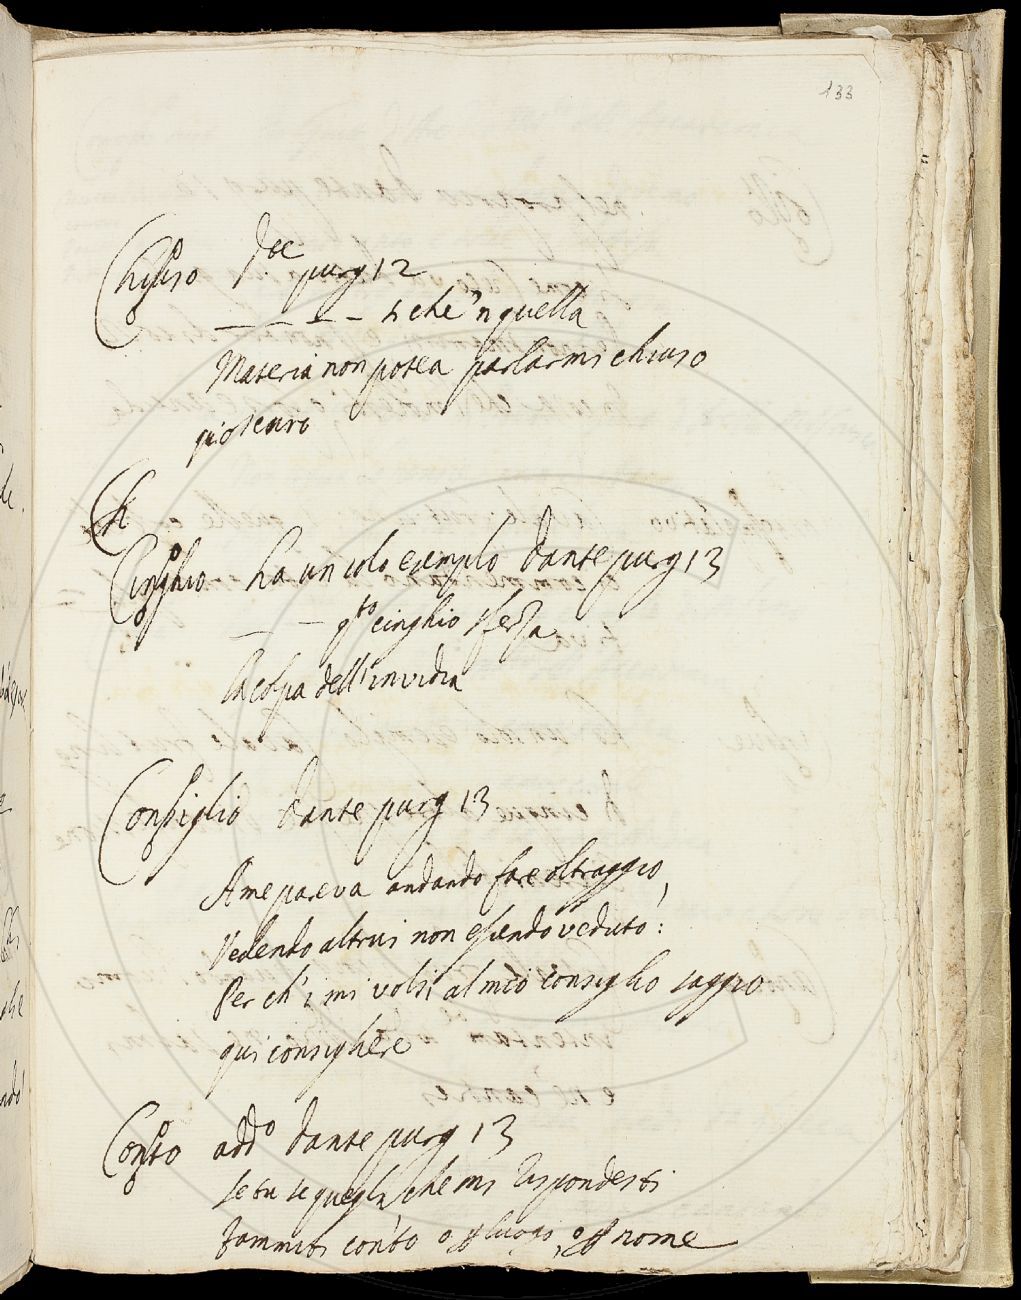 133
Chiuso purg 12
che 'n quella
Materia non potea parlarmi chiuso
qui oscuro
Ch
Cinghio ha un solo esemplo dante purg 13
q.to cinghio sferza
la colpa dell' invidia
Consiglio dante purg 13
A me pareva andando fare oltraggio,
Vedendo altrui non essendo veduto:
Per ch' i mi volsi al mio consiglio saggio
qui consigliere
Conto add.o dante purg 13
se tu se quegli che mi rispondesti
fammiti conto o luogo, o nome